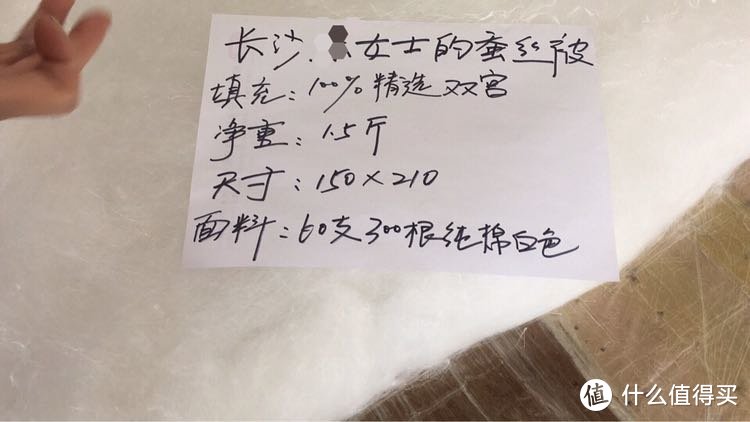 长沙 女士的蚕丝被
填充：100%精选双宫
净重：1.5斤
尺寸：150×210
面料：60支300根纯棉白色
值 什么值得买